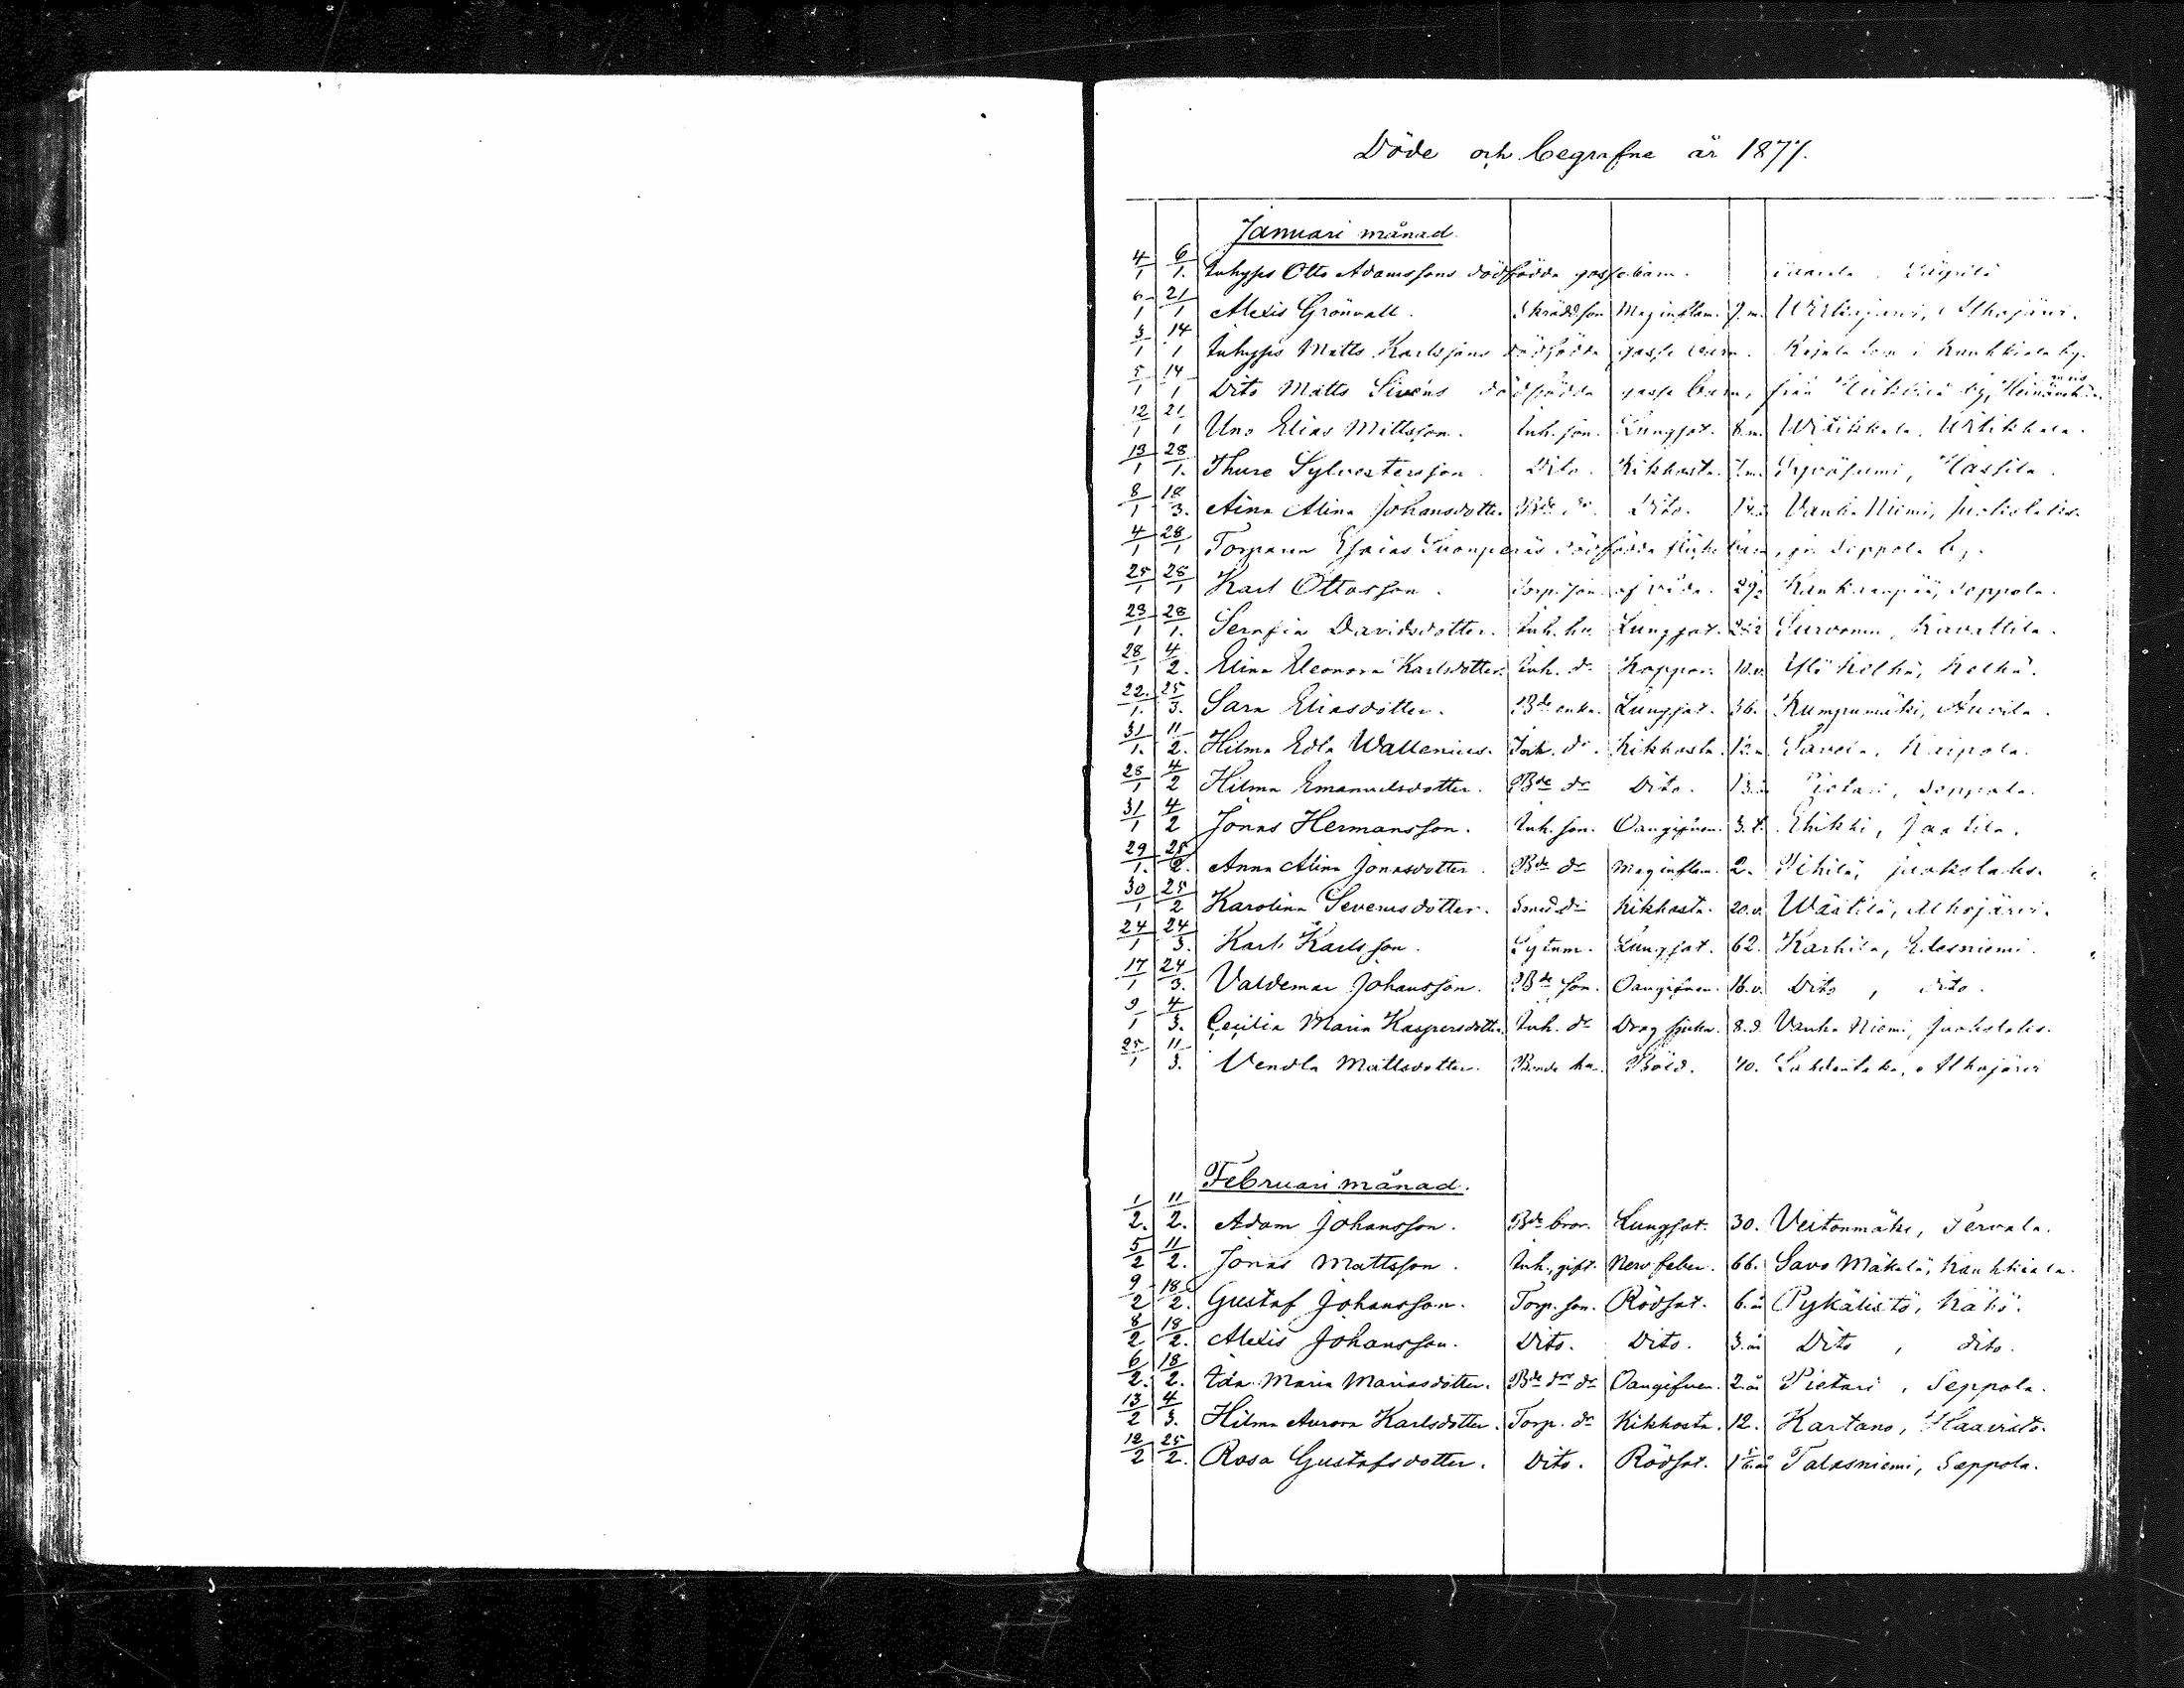 Döde och begrafne år 1877.
Januari månad.
4/1 6/1. Inhyses Otto Adamssons dödfödda gossebarn.
6/1 21/1 Alexis Grönvall. Skrädd. son Maginflam. 7.m. Alhojärvi.
3/1 14/1 Inhyses Matts Karlssons dödfödda gosse barn. i Kuukkiala by.
5/1 14/1 Dito Matts Siréns dödfödda gosse barn, från by,
12/1 21/1 Uno Elias Mattsson. Inh. son. Lungsot. 8.m. Witikkala, Witikkala.
13/1 28/1. Thure Sylvestersson. Dito. Kikhosta. 7.m. Hassila.
8/1 18/3. Aina Alina Johansdotter. Bde dr. Dito. Vanha Niemi, Juokslaks.
4/1 28/1 Torparen Esaias dödfödda flicke barn, fr. Seppola by.
25/1 28/1 Karl Ottosson. Torp. son. af våda. 29. Kankaanpää, Seppola.
23/1 28/1. Serafia Davidsdotter. Inh. hu. Lungsot.
28/1 4/2. Elina Eleonora Karlsdotter. Inh. dr Koppor. 10.v. Ylö Kelhä, Kelhä.
22./1. 25/3. Sara Eliasdotter. Bde enka. Lungsot. 36. Kumpumäki, Auvila.
31/1. 11/2. Hilma Edla Wallenius. Inh. dr. Kikhosta. Savela, Kaipola.
28/1 4/2 Hilma Emanuelsdotter. Bde dr Dito. Pietari, Seppola.
31/1 4/2 Jonas Hermansson. Inh. son. Oangifven. 3.t. Ehikki, Jaatila.
29/1. 25/2. Anna Alina Jonasdotter. Bde dr Maginflam. 2. Pihila, Juokslaks.
30/1 25/2 Karolina Severusdotter. Smed dr Kikhosta. 20.v. Wästilä, Alhojärvi.
24/1 24/3. Karl Karlsson. Sytnm. Lungsot. 62. Karhila, Edesniemi.
17/1 24/3. Valdemar Johansson. Bde son. Oangifven. 16.v. Dito, dito.
9/1 4/3. Cecilia Maria Kaspersdotter. Inh. dr Dragsjuka. 8.d. Vanha Niemi, Juokslaks.
25/1 11/3. Vendla Mattsdotter. Bonde hu. Böld. 40. Alhojärvi
Februari månad.
1/2. 11/2. Adam Johansson. Bde bror. Lungsot. 30. Veitonmäki, Pervala.
5/2 11/2. Jonas Mattsson. Inh., gift. Nervfeber. 66. Savo Mäkelä, Kuukkiala.
9/2 18/2. Gustaf Johansson. Torp. son. Rödsot. 6.år Pykälistö, Käkö.
8/2 18/2. Alexis Johansson. Dito. Dito. 3.år Dito, dito.
6/2. 18/2. Ida Maria Mariasdotter. Bde drs dr Oangifven. 2.år Pietari, Seppola.
13/2 4/3. Hilma Aurora Karlsdotter. Torp. dr Kikhosta. 12. Kartano, Haavisto.
12/2 25/2. Rosa Gustafsdotter. Dito. Rödsot. Talasniemi, Seppola.